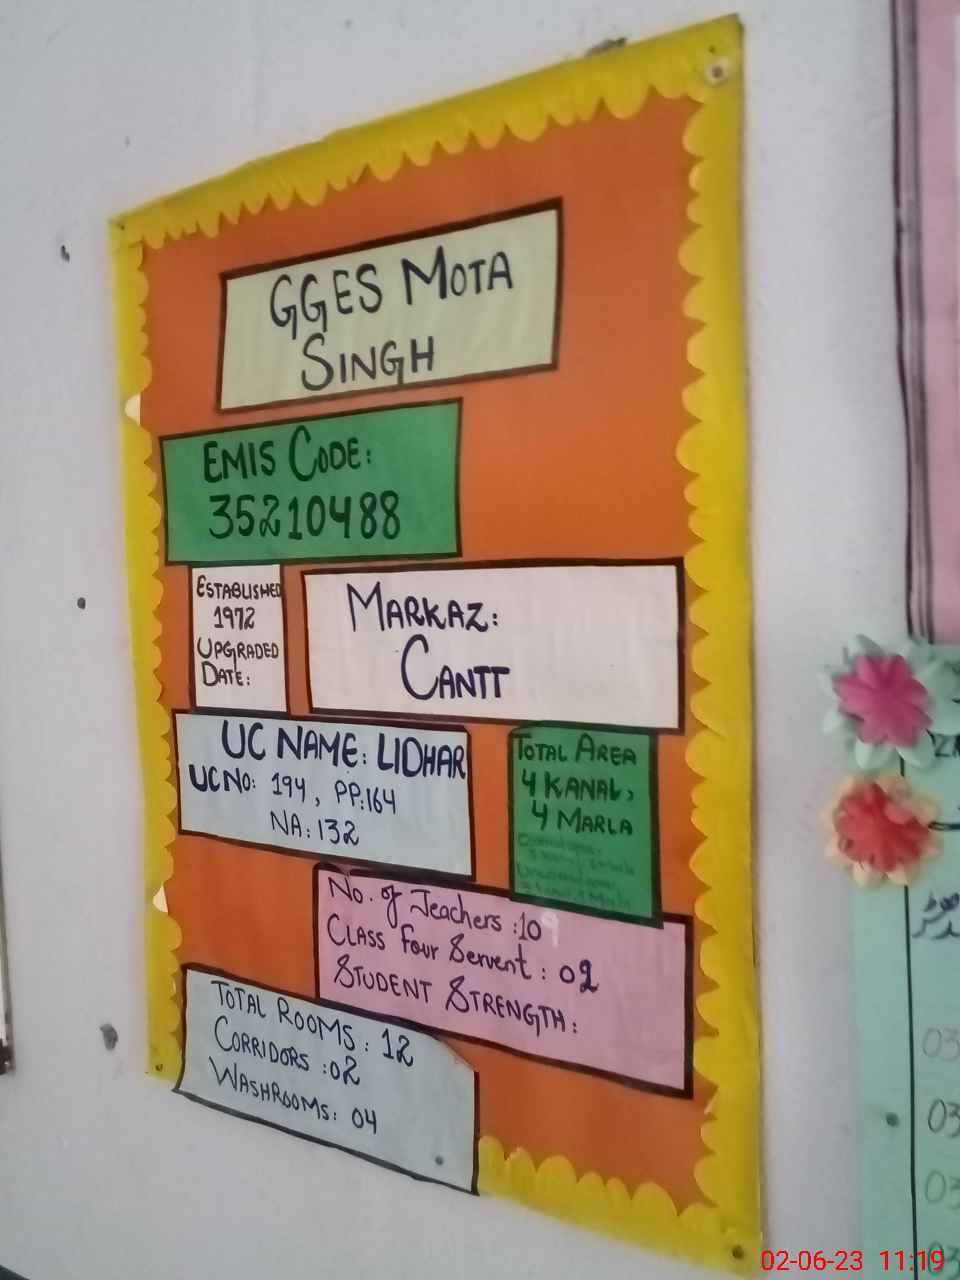 GGES MOTA
SINGH
EMIS CODE:
35210488
ESTABLISHED
1972
UPGRADED
DATE:
MARKAZ:
CANTT
UC NAME: LIDHAR
UC NO: 194, PP:164
NA:132
TOTAL AREA
4 KANAL,
4 MARLA
No. of Teachers :10
CLASS Four Servent : 02
STUDENT STRENGTH:
TOTAL ROOMS: 12
CORRIDORS :02
WASHROOMS: 04
03
03
03
03
02-06-23 11:19